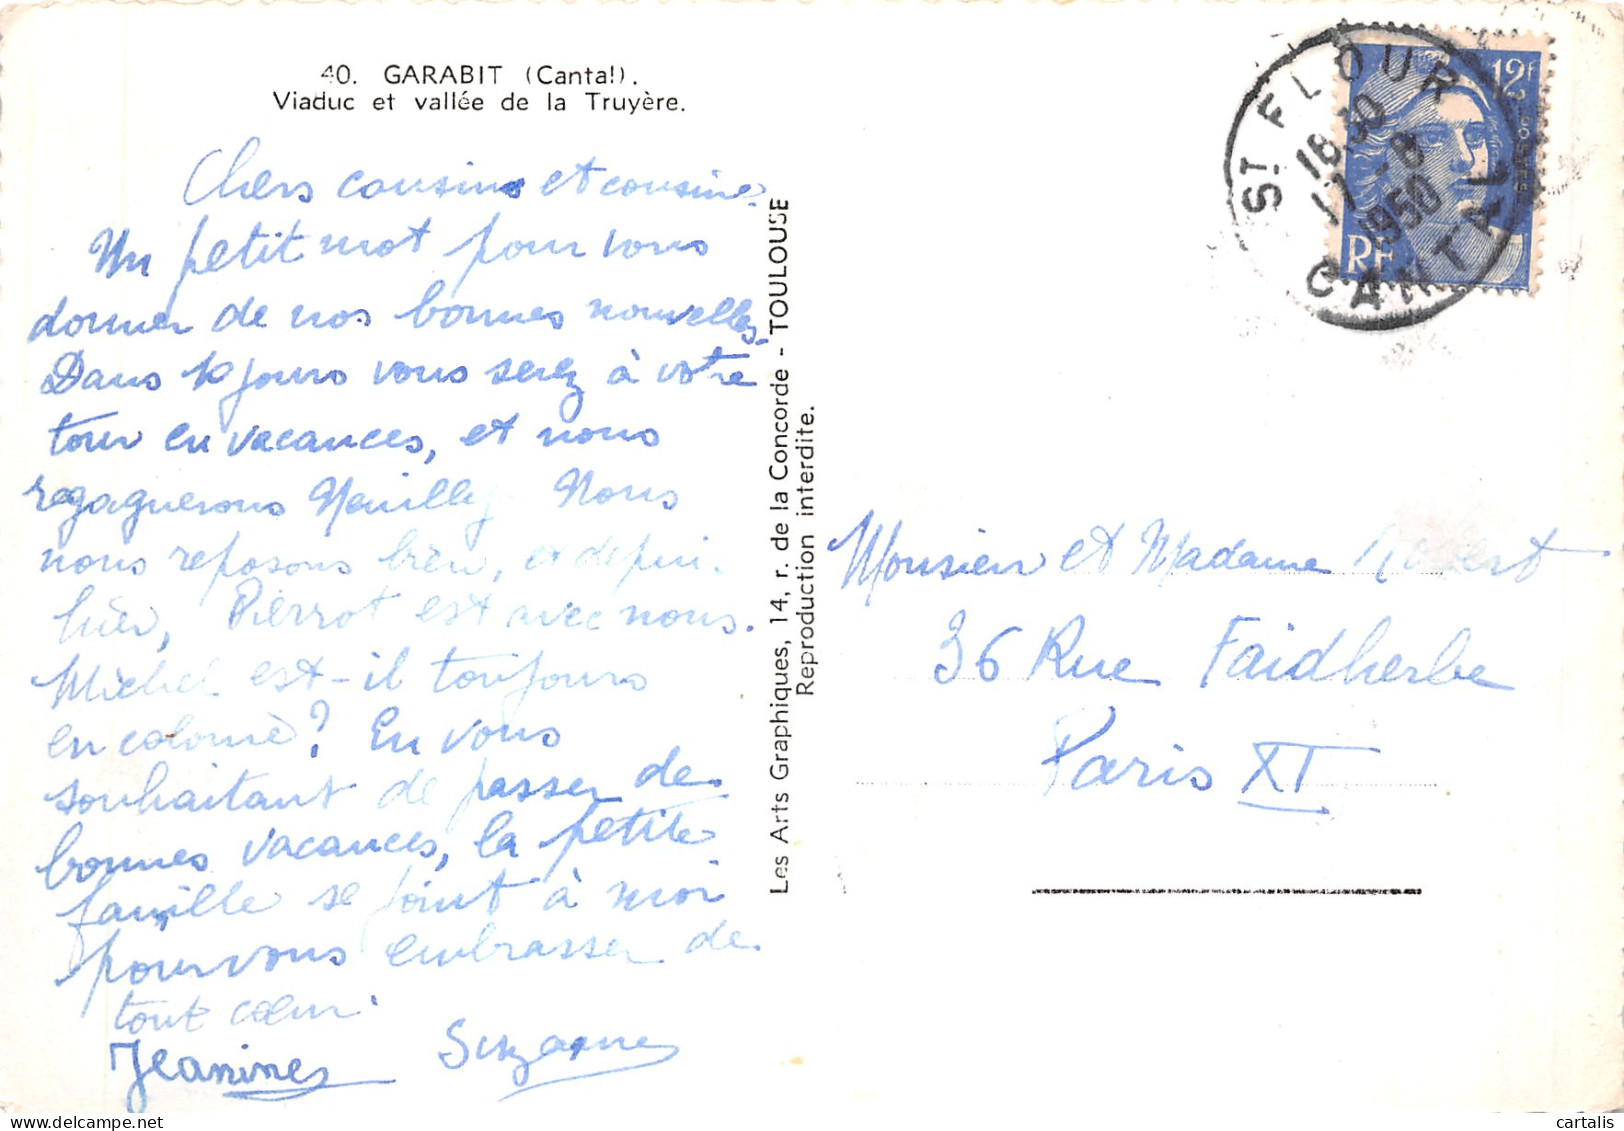 40. GARABIT (Cantal).
Viaduc et vallée de la Truyère.
Chers cousins et cousine.
Un petit mot pour vous
donner de nos bonnes nouvelles.
Dans 10 jours vous serez à votre
tour en vacances, et nous
regagnerons Neuilly. Nous
nous reposons bien, et depuis
hier, Pierrot est avec nous.
Michel est-il toujours
en colonie? En vous
souhaitant de passer de
bonnes vacances, la petite
famille se joint à moi
pour vous embrasser de
tout cœur.
Jeanine Suzanne
Les Arts Graphiques, 14, r. de la Concorde - TOULOUSE
Reproduction interdite.
ST FLOUR
18 30
17 - 8
1950
CANTAL
12F
POSTES
RF
Monsieur et Madame
36 Rue Faidherbe
Paris XI
cartalis
www.delcampe.net